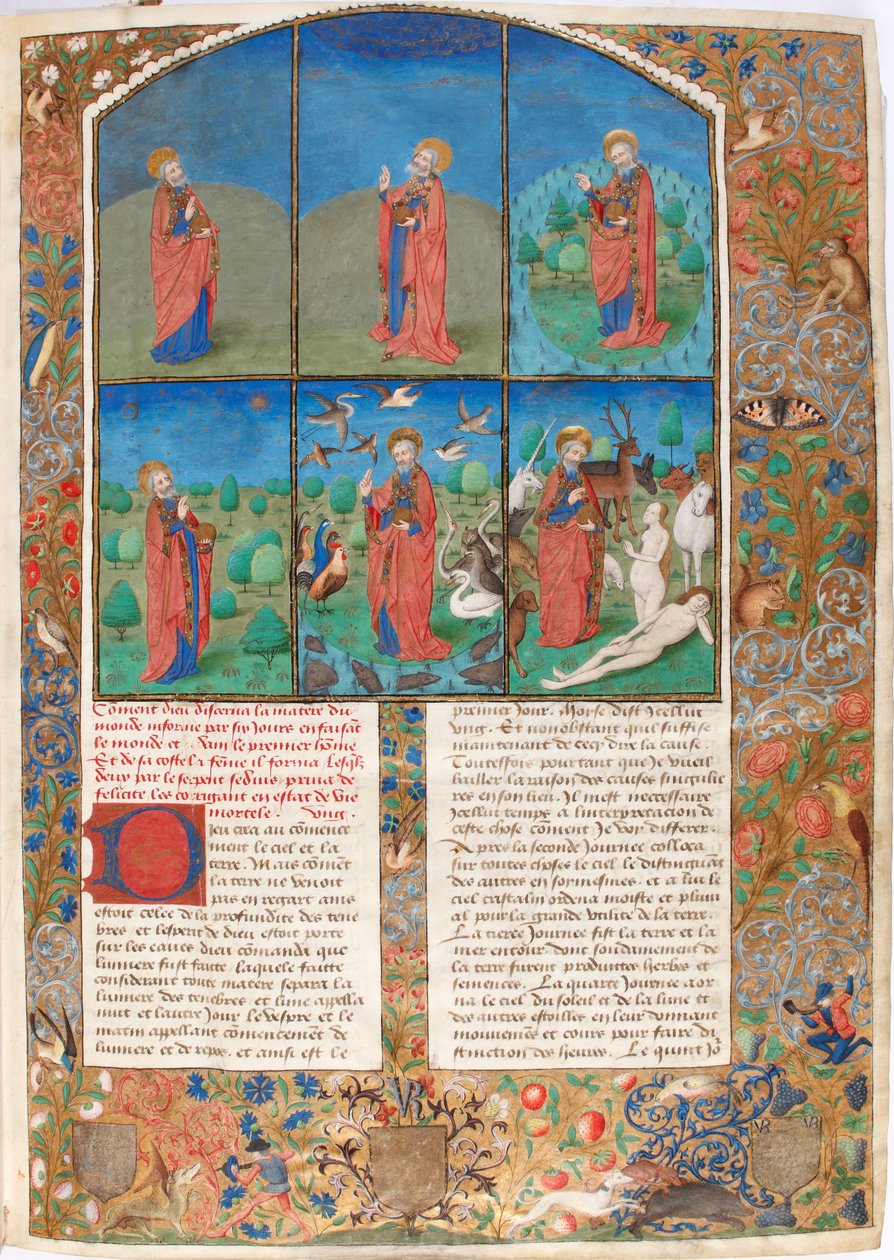 Coment dieu discerna la matere du
monde informe par six Jours en faisāt
le monde et. Dun le premier hōme
Et de sa coste la feme il forma Lesqlz
deux par le serpent seduis priua de
felicite les corrigant en estat de vie
mortele. Vng.
Dieu crea au cōmence
ment le ciel et la
terre. Mais cōmēt
la terre ne venoit
pas en regart ains
estoit celee de la profundite des tene
bres et lesperit de dieu estoit porte
sur les eaues dieu comanda que
lumiere fust faitte, laquele faitte
considerant toute matere separa la
lumiere des tenebres et lune appella
nuit et lautre Jour le vespre et le
matin appellant cōmencement de
lumiere et de repos. et ainsi est le
premier Jour. Moyse dist Jcellui
vng. Et non obstant quil suffise
maintenant de cecy dire la cause.
Touteffois pourtant que Je vueil
bailler la raison des causes singulie
res en son lieu. Jl mest necessaire
Jcellui temps a linterpretacion de
ceste chose cōment Je voy differer.
Apres la seconde Journee colloca
sur toutes choses le ciel le distinguāt
des autres en soy mesmes. et a lui le
ciel cristalin ordena moiste et pluui
al pour la grande vtilite de la terre.
La tierce Journee fist la terre et la
mer entour. dont soudainement de
la terre furent produittes herbes et
semences. La quarte Journee aor
na le ciel du soleil et de la lune et
des autres estoilles en leur donnant
mouuemēs et cours pour faire di
stinction des heures. Le quint Jo
VR
VR
VR